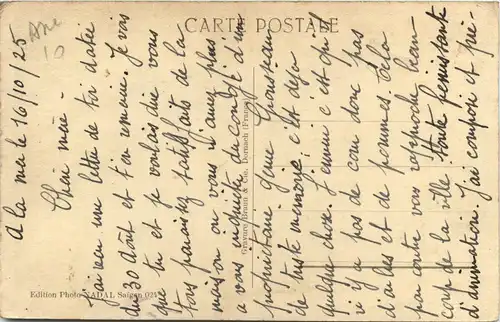 CARTE POSTALE
Ane
10
A la mer le 16/10/25
Chère mère -
J'ai reçu une lettre de toi datée
du 30 Août et t'en remercie. Je vois
que tu et je voulais dire vous
tous paraissez satisfaits de la
maison où vous n'aurez plus
à vous inquiéter du congé d'un
propriétaire genre
de triste mémoire, c'est déjà
quelque chose. J'ennui c'est qu'il
n'y a pas de cour donc pas
d'ailes et de pommes. Cela
par contre vous rapproche beau-
coup de la ville toute
d'animation. J'ai composé et pré-
Gravure Braun & Cie, Dornach (France)
Edition Photo NADAL Saigon 021